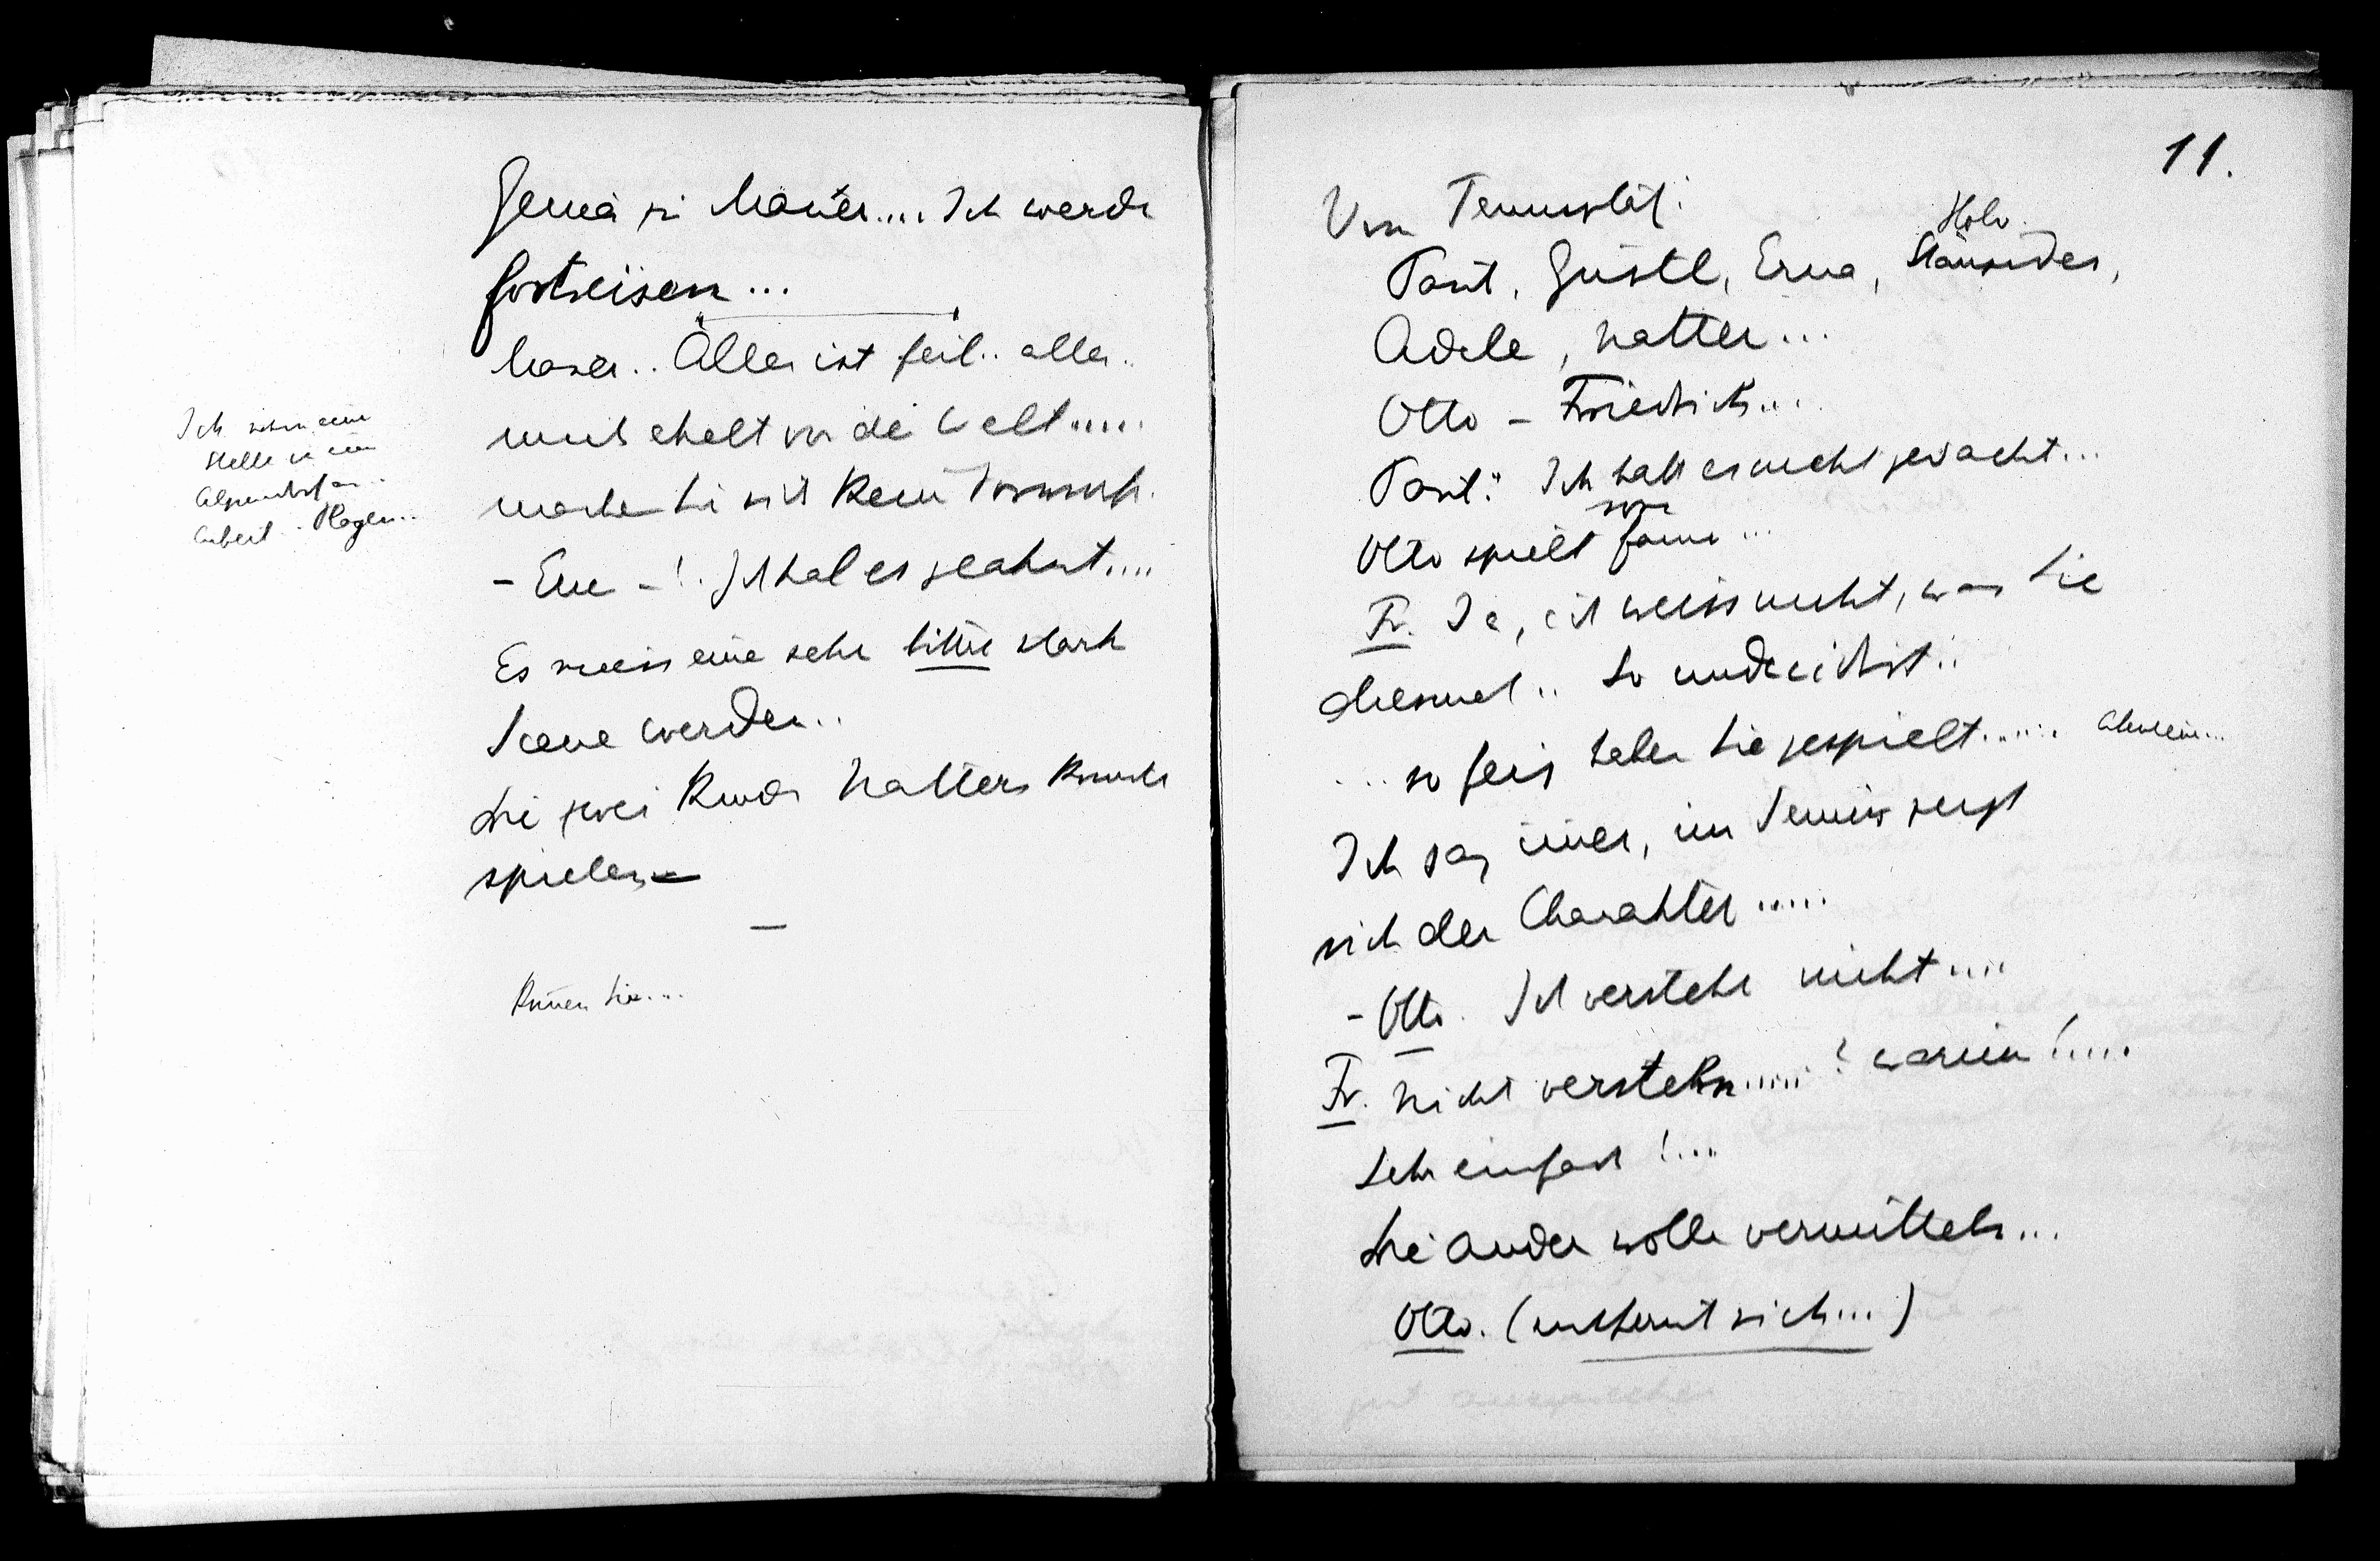 Genia zu Mauer.... Ich werde
fortreisen...
Mauer.. Alles ist feil.. alles..
von der Welt.....
mache Sie mir kein Vorwurf.
– Eue –! Ich hab es geahnt....
Es muss eine sehr bittre starke
Scene werden..
Die zwei Kinder Natters kommen
spielen –
Ich nehme eine
Stelle in einem
Alpendorf an..
Arbeit
Kommen Sie....
11.
Vom Tennisplatz:
Paul, Gustl, Erna,
Adele, Natter...
Otto – Friedrich...
Paul: Ich hätt es nicht gedacht...
Otto spielt famos...
Fr. Ja, ich weiss nicht, was Sie
diesmal.. So undecidirt..
... so feig haben Sie gespielt......
Ich sag immer, im Tennis zeigt
sich der Charakter.....
– Otto. Ich verstehe nicht....
Fr. Nicht verstehn.....? warum!.....
Sehr einfach!....
Die Andern wollen vermitteln...
Otto. (entfernt sich...)